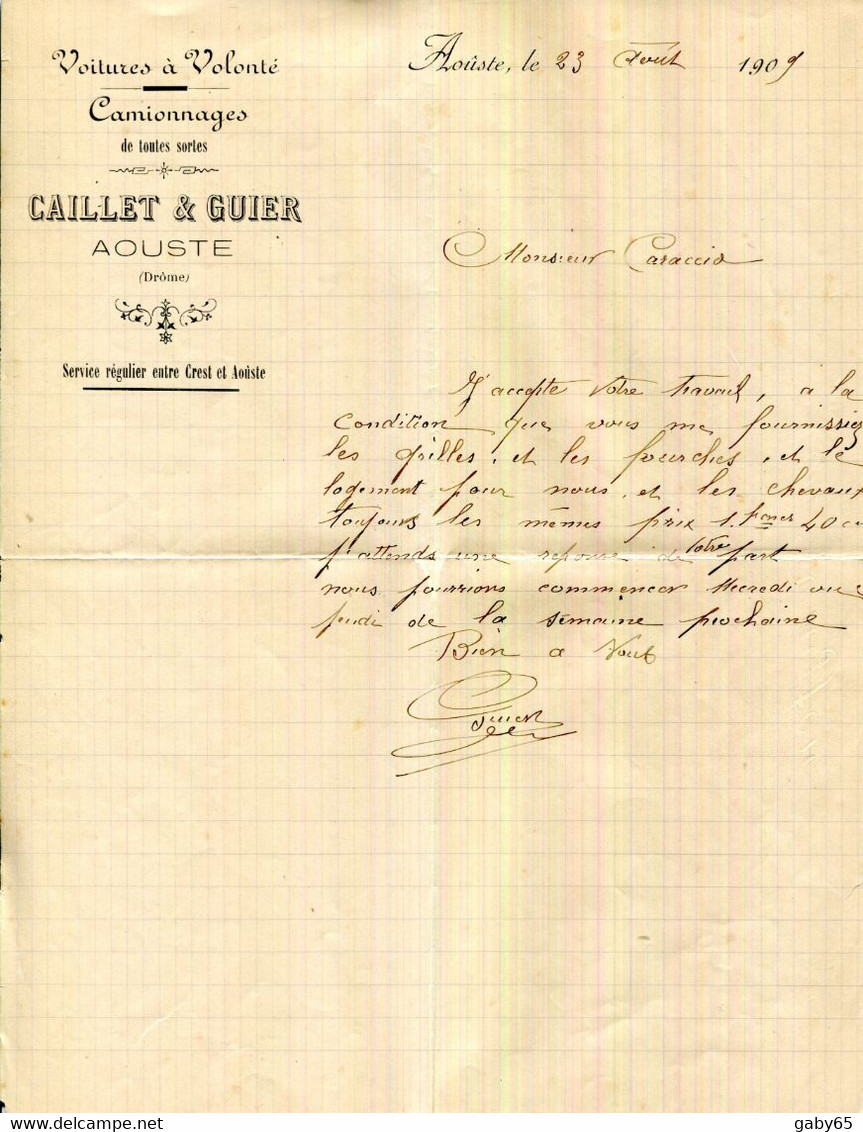 Voitures à Volonté
Camionnages
de toutes sortes
CAILLET & GUIER
AOUSTE
(Drôme)
Service régulier entre Crest et Aoûste
Aoûste, le 23 Août 1909
Monsieur Caraccio
J'accepte votre travail, a la
condition que vous me fournissiez
les grilles, et les fourches, et le
logement pour nous, et les chevaux
toujours les mêmes prix 1. 40
j'attends une reponse de votre part
nous pourrions commencer Mecredi ou
jeudi de la semaine prochaine
Bien a Vous
Guier
delcampe.net
gaby65